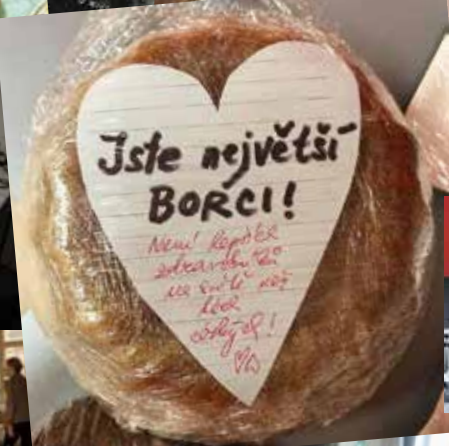 Jste největší
BORCI!
Není lepších
zdravotníků
na světě než